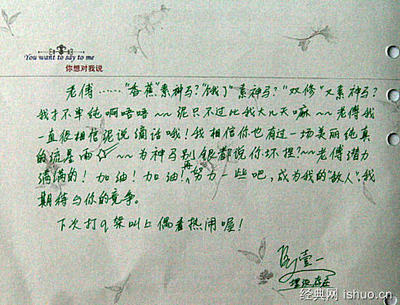 You want to say to me
你想对我说
老傅……"香蕉"素神马?"饿了"素神马?"双修"又素神马?
我才不单纯啊唔唔~~泥只不过比我大几天嘛~~老傅我
一直很相信泥说滴话哦!我相信你也有过一场美丽纯真
的流星雨☆~~为神马别银都说你坏捏?~~老傅潜力
满满的!加油!加油!再努力一些吧,成为我的"敌人",我
期待与你的竞争。
下次打q架叫上偶看热闹喔!
经典网 ishuo.cn